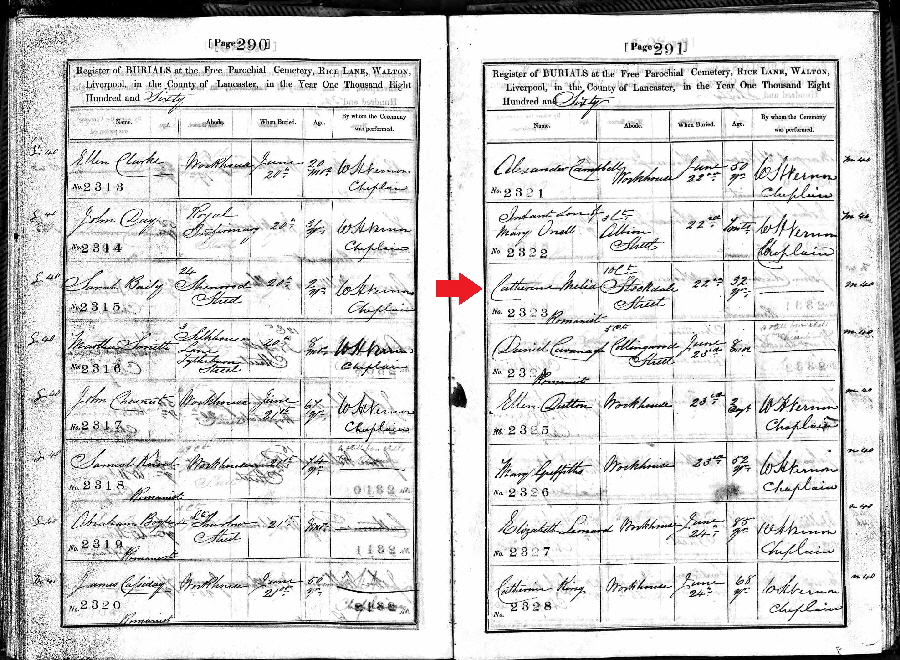 [Page 290]
Register of BURIALS at the Free Parochial Cemetery, RICE LANE, WALTON,
Liverpool, in the County of Lancaster, in the Year One Thousand Eight
Hundred and Sixty
Name. Abode. When Buried. Age. By whom the Ceremony was performed.
Ellen Clarke Workhouse June 20th 20 mos W H Vernon Chaplain
No. 2313
John Day Royal Infirmary 20th W H Vernon Chaplain
No. 2314
Samuel 24 Sherwood Street 20th 2 yrs W H Vernon Chaplain
No. 2315
Martha Smith 3 Street 20th 8 mos W H Vernon Chaplain
No. 2316
John Workhouse June 21st 67 yrs W H Vernon Chaplain
No. 2317
Samuel Workhouse 74 yrs
No. 2318
Romanist
Abraham Street 21st
No. 2319
Romanist
James Workhouse June 21st 50 yrs
No. 2320
Romanist
[Page 291]
Register of BURIALS at the Free Parochial Cemetery, RICE LANE, WALTON,
Liverpool, in the County of Lancaster, in the Year One Thousand Eight
Hundred and Sixty
Name. Abode. When Buried. Age. By whom the Ceremony was performed.
Alexander Campbell Workhouse June 22nd 50 yrs W H Vernon Chaplain
No. 2321
Infant Son of Mary Oneill 3 Ct Albion Street 22nd W H Vernon Chaplain
No. 2322
Catherine Melia 10 Ct Stockdale Street 22nd 32 yrs
No. 2323
Romanist
Daniel Cavanagh Collingwood Street June 23rd
No. 232
Romanist
Ellen Dutton Workhouse 23rd W H Vernon Chaplain
No. 2325
Mary Griffiths Workhouse 23rd 52 yrs W H Vernon Chaplain
No. 2326
Elizabeth Leonard Workhouse June 24th 85 yrs W H Vernon Chaplain
No. 2327
Catherine King Workhouse June 24th 68 yrs W H Vernon Chaplain
No. 2328